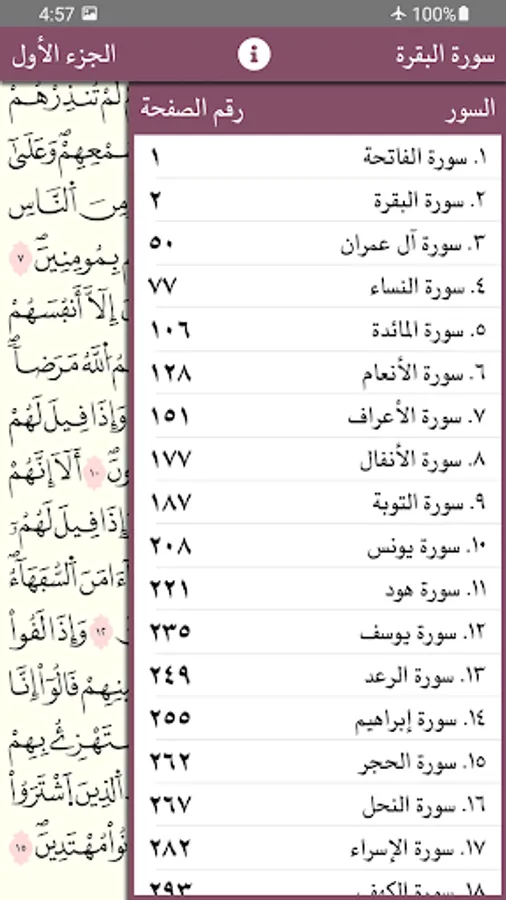 4:57 100%
سورة البقرة الجزء الأول
السور رقم الصفحة
١. سورة الفاتحة ١
٢. سورة البقرة ٢
٣. سورة آل عمران ٥٠
٤. سورة النساء ٧٧
٥. سورة المائدة ١٠٦
٦. سورة الأنعام ١٢٨
٧. سورة الأعراف ١٥١
٨. سورة الأنفال ١٧٧
٩. سورة التوبة ١٨٧
١٠. سورة يونس ٢٠٨
١١. سورة هود ٢٢١
١٢. سورة يوسف ٢٣٥
١٣. سورة الرعد ٢٤٩
١٤. سورة إبراهيم ٢٥٥
١٥. سورة الحجر ٢٦٢
١٦. سورة النحل ٢٦٧
١٧. سورة الإسراء ٢٨٢
١٨. سورة الكهف ٢٩٣
لَمْ تُنذِرْهُمْ
وَعَلَىٰ
مِنَ اَ۬لنَّاسِ
بِمُومِنِينَۖ ٧
إِلَّآ أَنفُسَهُمْ
اُ۬للَّهُ مَرَضاٗۖ
وَإِذَا قِيلَ لَهُمْ
١٠ أَلَآ إِنَّهُمْ
قِيلَ لَهُمُۥٓ
ءَامَنَ اَ۬لسُّفَهَآءُۖ
١٢ وَإِذَا لَقُواْ
قَالُوٓاْ إِنَّا
بِهِمْ
اَ۬لذِينَ اَ۪شْتَرَوُاْ
مُهْتَدِينَۖ ١٥